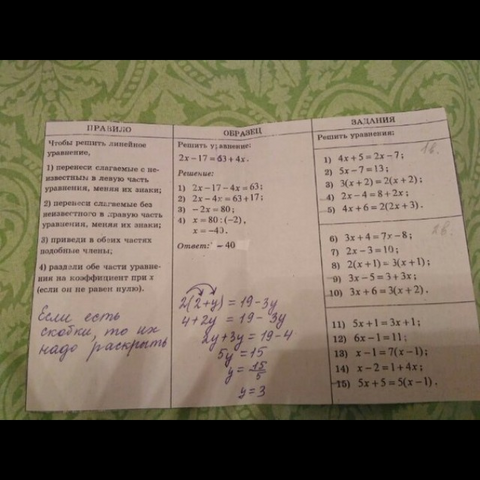 ПРАВИЛО
Чтобы решить линейное
уравнение,
1) перенеси слагаемые с не-
известным в левую часть
уравнения, меняя их знаки;
2) перенеси слагаемые без
неизвестного в правую часть
уравнения, меняя их знаки;
3) приведи в обеих частях
подобные члены;
4) раздели обе части уравне-
ния на коэффициент при x
(если он не равен нулю).
Если есть
скобки, то их
надо раскрыть
ОБРАЗЕЦ
Решить уравнение:
2x – 17 = 63 + 4x.
Решение:
1) 2x – 17 – 4x = 63;
2) 2x – 4x = 63 + 17;
3) – 2x = 80;
4) x = 80 : (–2),
x = –40.
Ответ: – 40
2(2+y) = 19-3y
4+2y = 19-3y
2y+3y = 19-4
5y = 15
y = 15/5
y = 3
ЗАДАНИЯ
Решить уравнения:
1в.
1) 4x + 5 = 2x – 7;
2) 5x – 7 = 13;
3) 3(x + 2) = 2(x + 2);
4) 2x – 4 = 8 + 2x;
5) 4x + 6 = 2(2x + 3).
2в.
6) 3x + 4 = 7x – 8;
7) 2x – 3 = 10;
8) 2(x + 1) = 3(x + 1);
9) 3x – 5 = 3 + 3x;
10) 3x + 6 = 3(x + 2).
11) 5x + 1 = 3x + 1;
12) 6x – 1 = 11;
13) x – 1 = 7(x – 1);
14) x – 2 = 1 + 4x;
15) 5x + 5 = 5(x – 1).